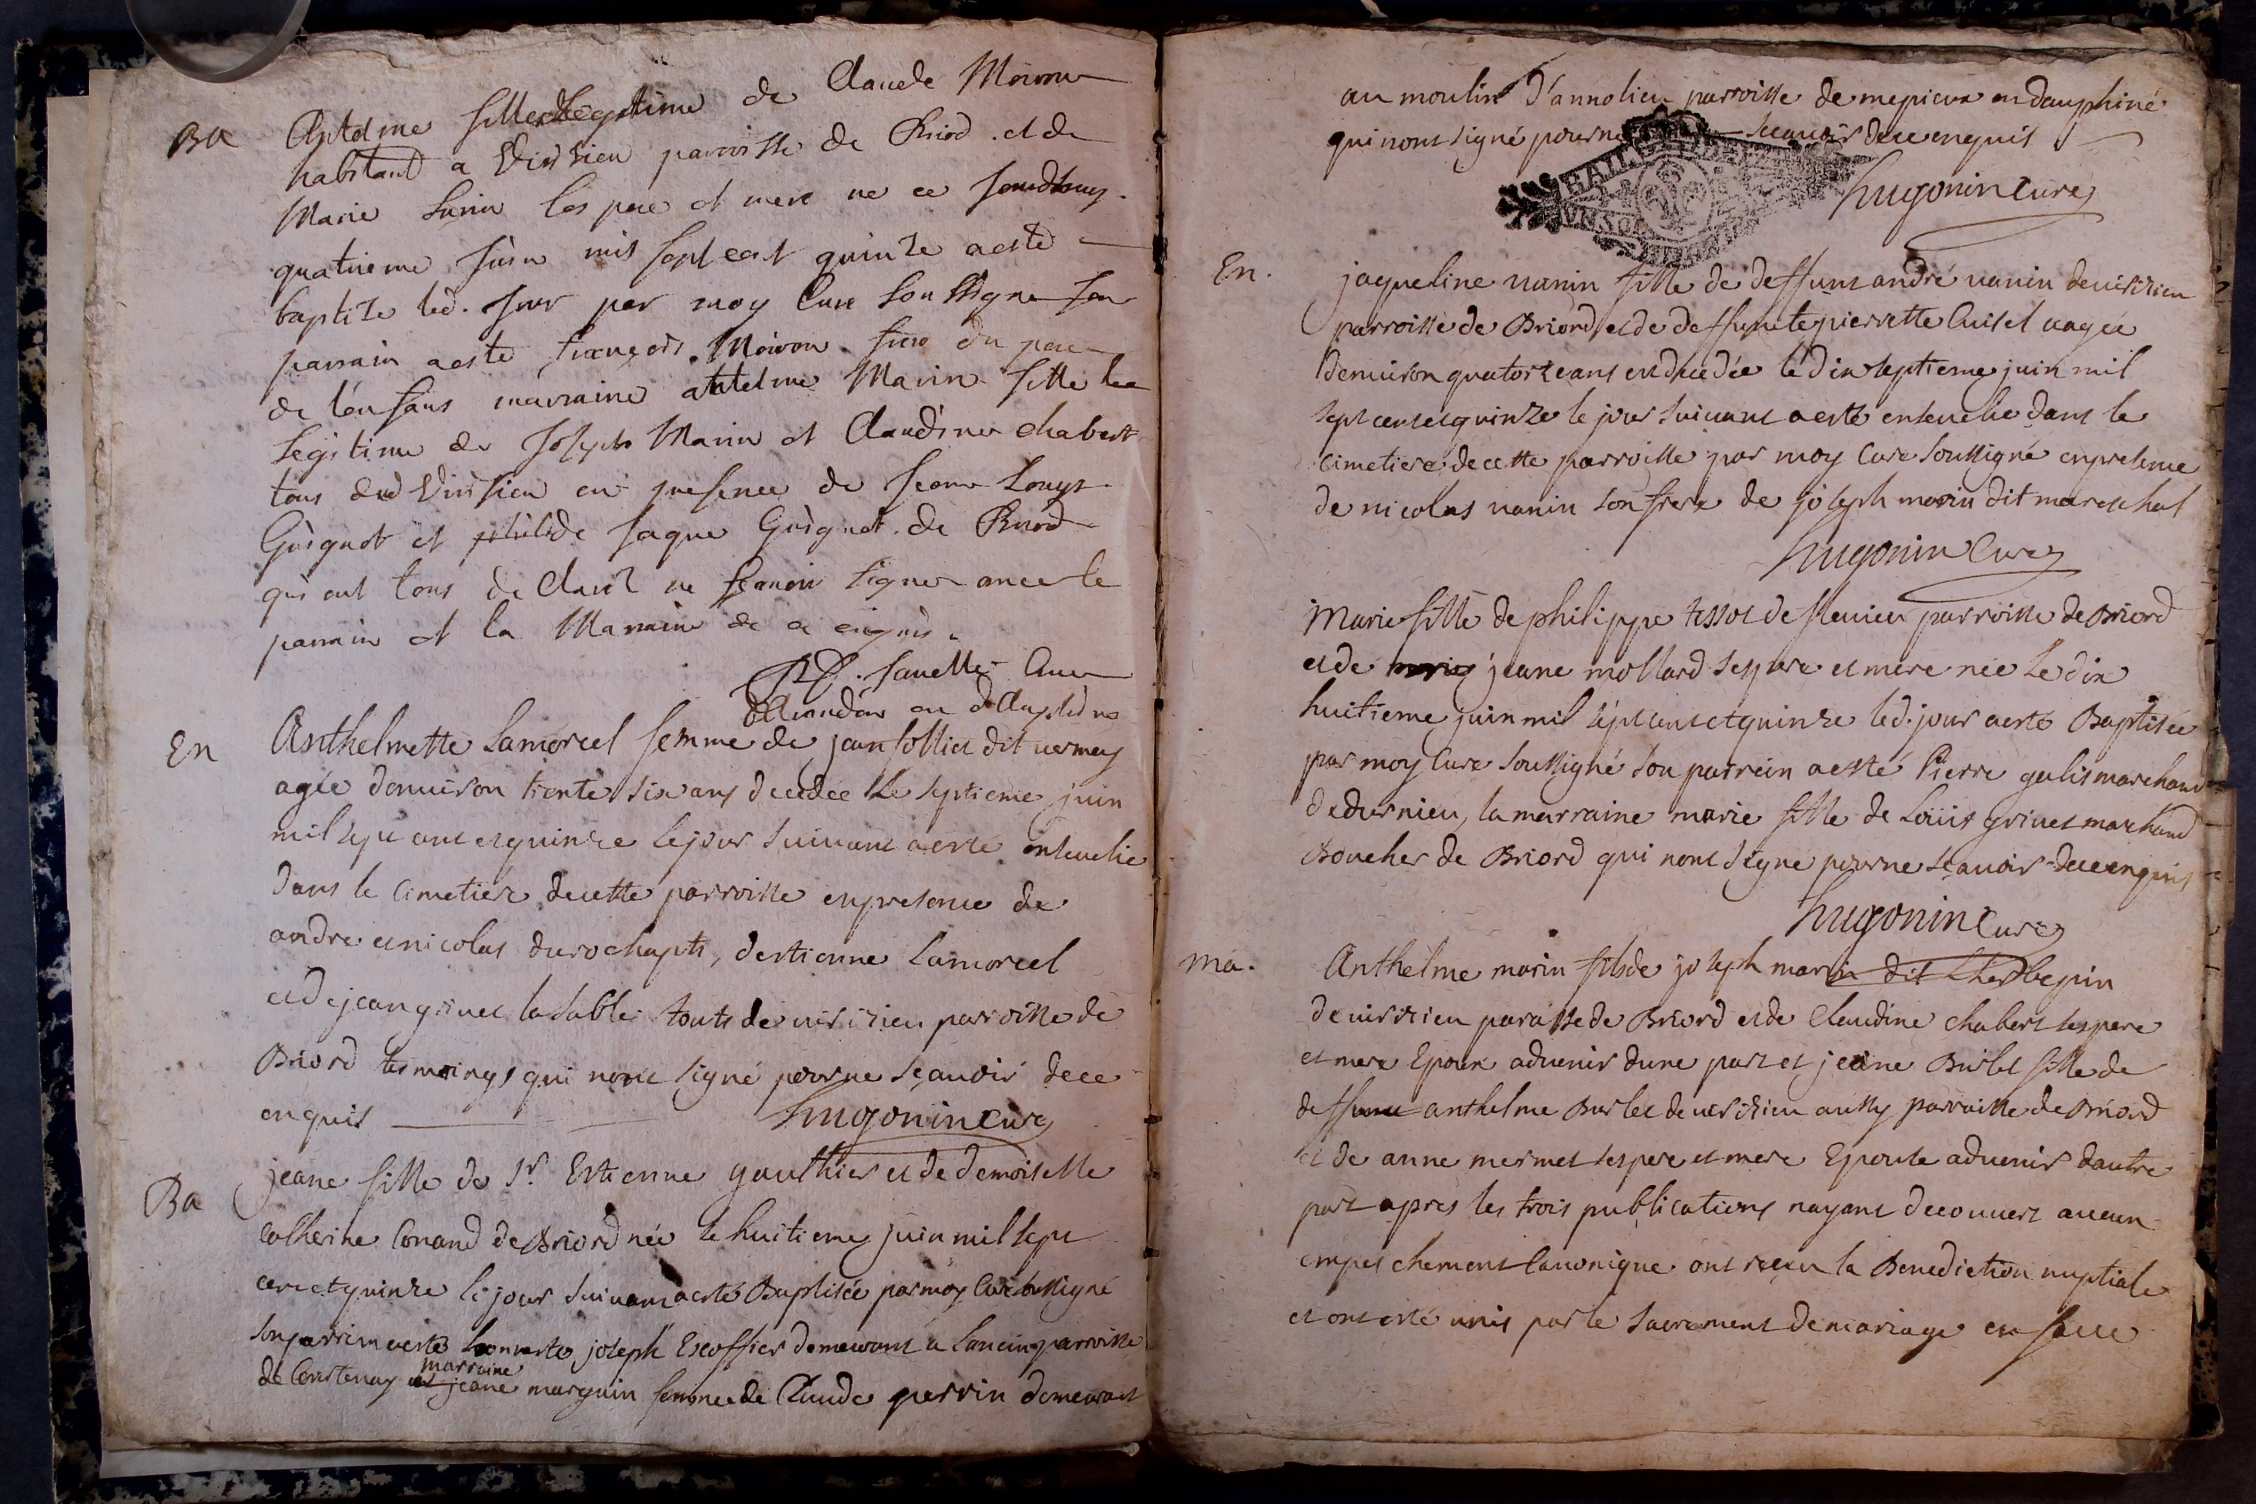 Ba
Antelme fille legitime de Claude Moiron
habitant a Virisieu parroisse de Briord et de
Marie les pere et mere ne ce jourdhuy
quatrieme Juin mil sept cent quinze a esté
baptize led. jour par moy Curé soussigné son
parrain a esté françois Moiron frere du pere
de l'enfans marraine antelme Marin fille
legitime de Joseph Marin et Claudine chabert
tous dud Virisieu en presence de Jean Louys
Guignot et de Jaque Guignot de Briord
qui ont tous declaré ne scavoir signer avec le
parrain et la Marraine de ce enquis.
Curé
en dauphiné
En
Anthelmette Lamorcel femme de jean follict dit
agée denuiron trente six ans decedée le septieme juin
mil sept cent et quinze le jour suiuant a esté enseuelie
dans le cimetiere de cette parroisse en presence de
andre et nicolas durochapts, d'estienne Lamorcel
et de jean griuet la sable touts de virizieu parroisse de
Briord tesmoings qui nont signé pour ne scauoir de ce
enquis Hugonin Curé
Ba
jeane fille de Sr. Estienne gauthier et de demoiselle
catherine Conand de Briord née le huitieme juin mil sept
cent et quinze le jour suiuant a esté Baptisée par moy Curé soussigné
son parrein a esté honneste joseph Escoffier demeurant a Lancin parroisse
de Courtenay marraine jeane marguin femme de Claude perrin demeurant
au moulin d'annolieu parroisse de mepieux en dauphiné
qui nont signé pour ne scauoir de ce enquis
Hugonin Curé
En.
jaqueline nanin fille de deffunt andré nanin de virizieu
parroisse de Briord et de deffuncte pierrette Cuisel aagée
denuiron quatorze ans est decedée le dix septieme juin mil
sept cent et quinze le jour suiuant a esté enseuelie dans le
cimetiere de cette parroisse par moy Curé soussigné en presence
de nicolas nanin son frere de joseph marin dit mareschal
Hugonin Curé
Marie fille de philippe tissot de flevieu parroisse de Briord
et de jeane mollard ses pere et mere née le dix
huitieme juin mil sept cent et quinze led. jour a esté Baptisée
par moy Curé soussigné son parrein a esté Pierre galis marchand
de dornieu, la marraine marie fille de Loüis griuet marchand
Boucher de Briord qui nont signé pour ne scauoir de ce enquis
Hugonin Curé
Ma.
Anthelme marin fils de joseph marin dit
de virizieu paroisse de Briord et de Claudine chabert ses pere
et mere Epoux aduenir dune part et jeane Burlet fille de
deffunt anthelme Burlet de virizieu aussy parroisse de Briord
et de anne mermet ses pere et mere Epouse aduenir dautre
part apres les trois publications nayant decouuert aucun
empeschement Canonique ont receu la Benediction nuptiale
et ont esté unis par le Sacrement de mariage en face